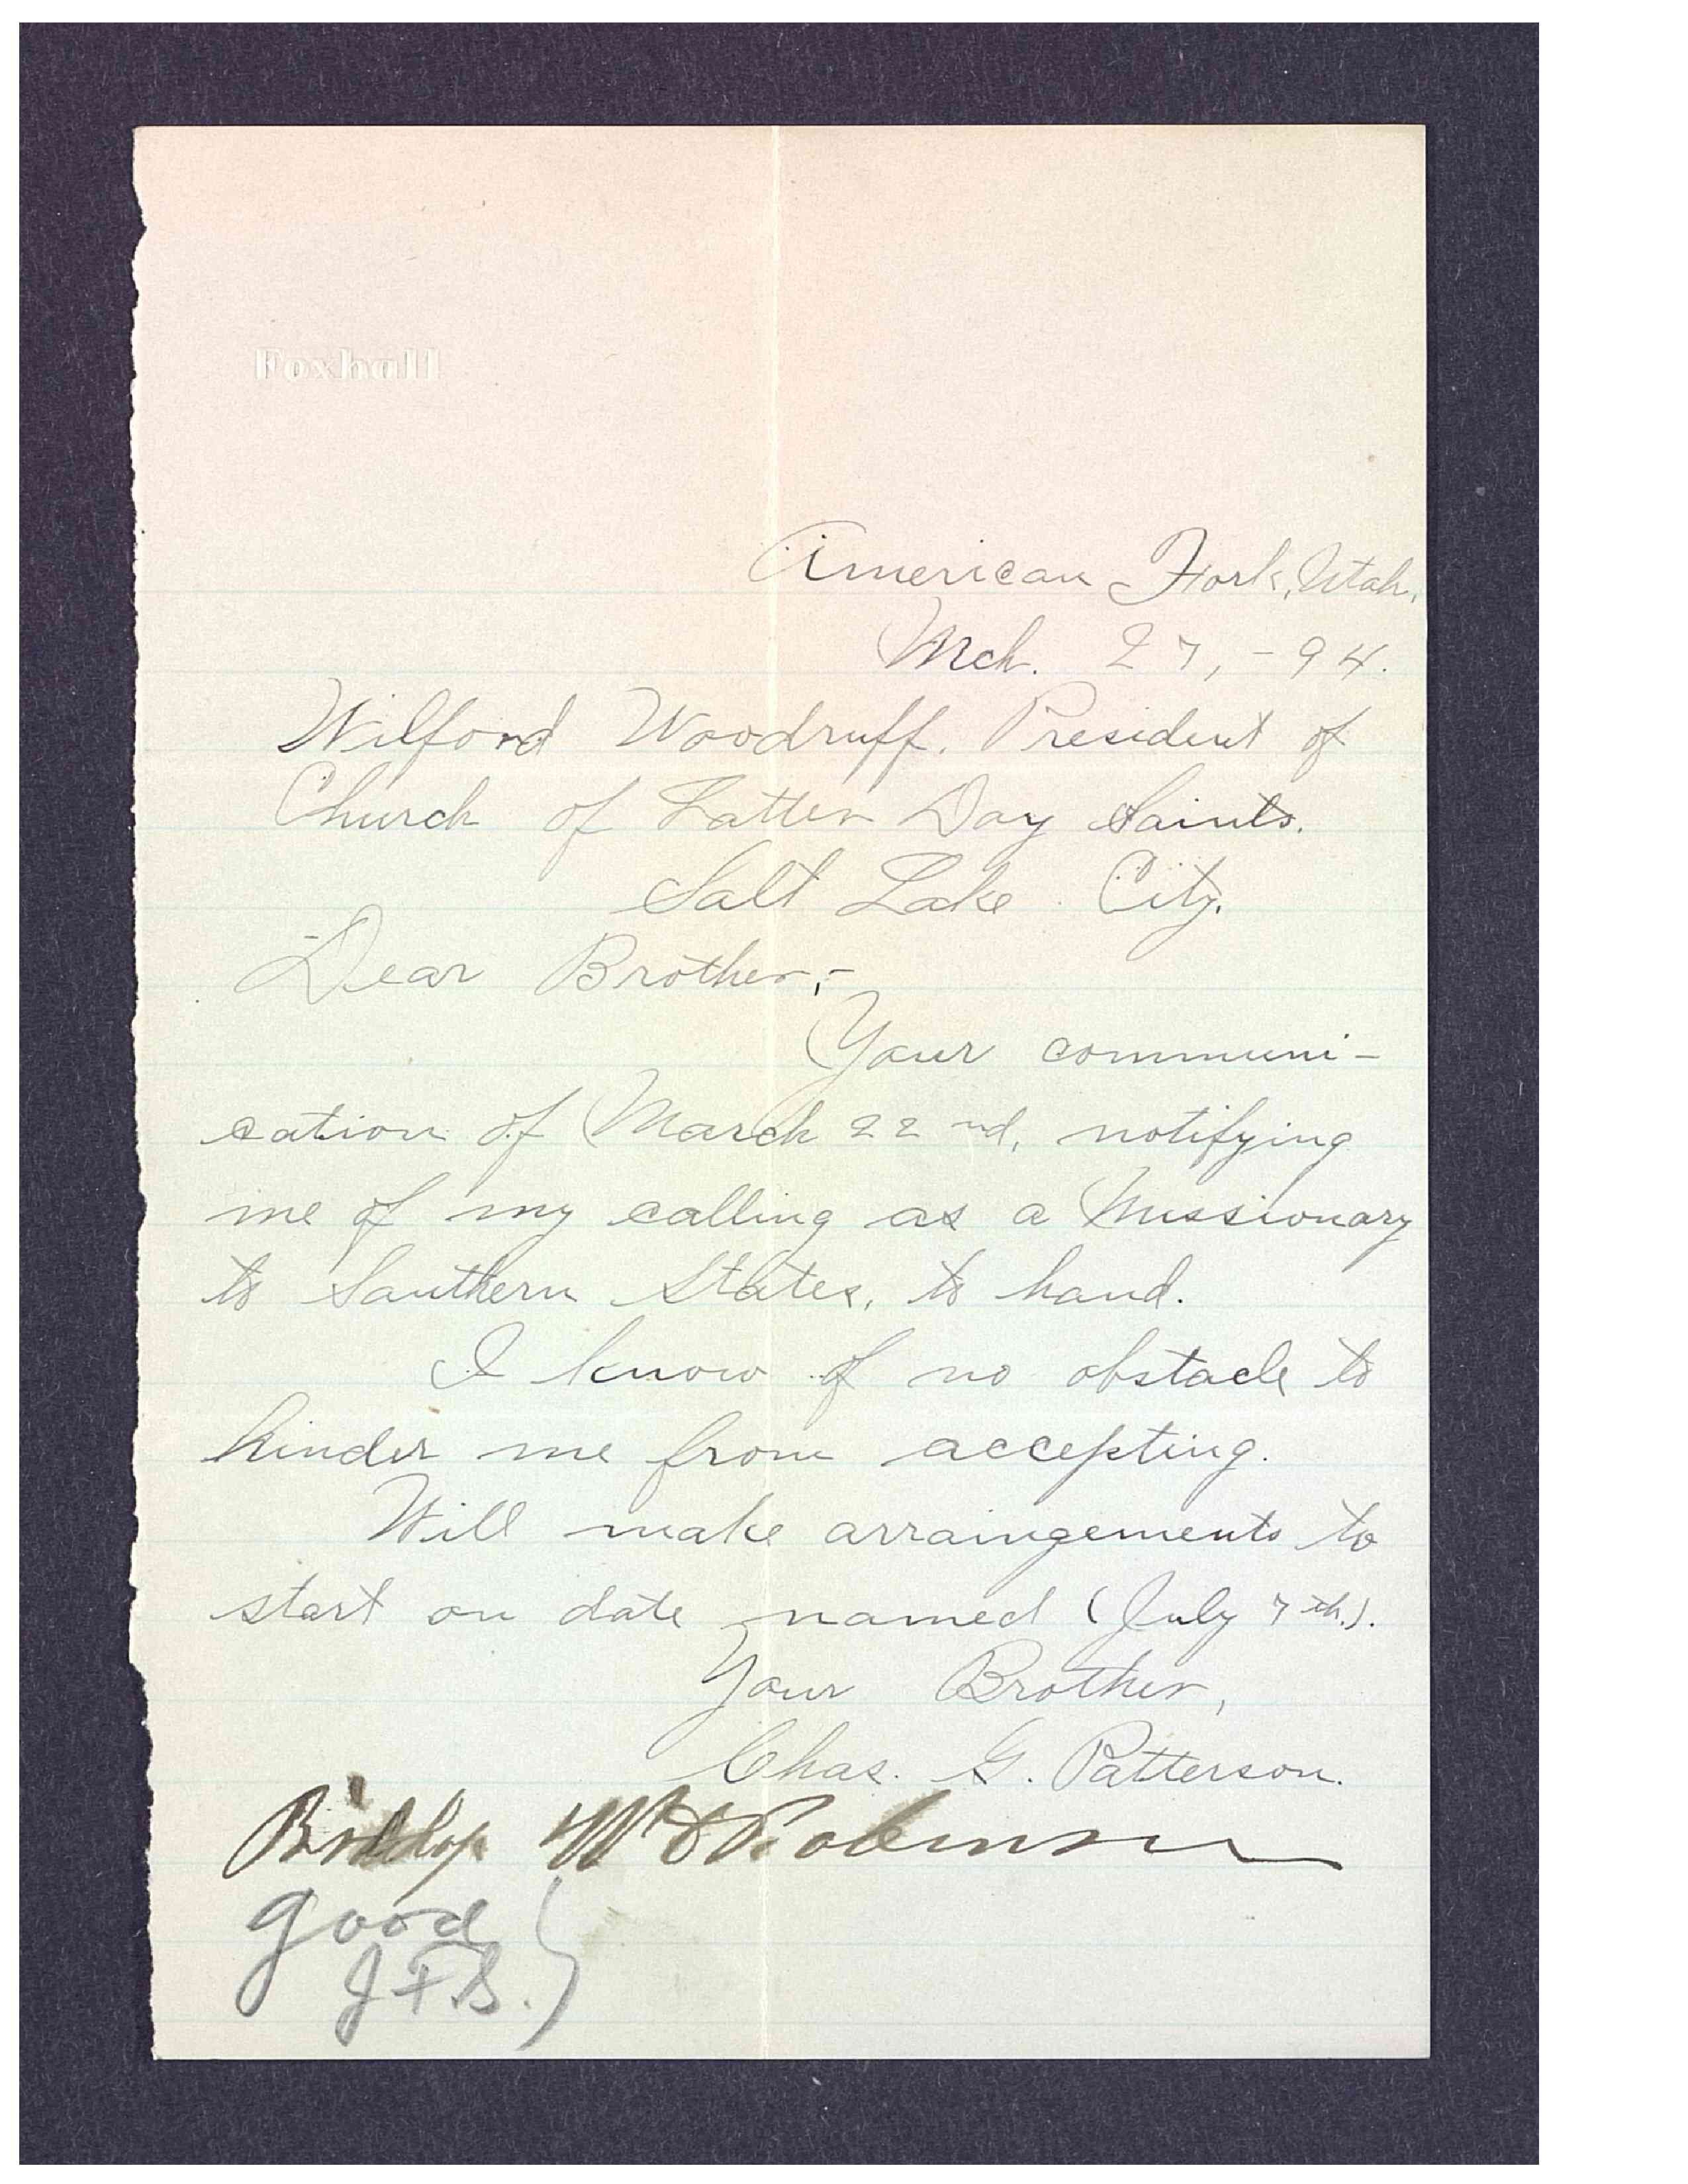 Foxhall
American Fork, Utah,
Mch. 27, - 94.
Wilford Woodruff. President of
Church of Latter Day Saints.
Salt Lake City.
Dear Brother;-
Your communi-
cation of March 22nd, notifying
me of my calling as a Missionary
to Southern States, to hand.
I know of no obstacle to
hinder me from accepting.
Will make arraingements to
start on date named (July 7th.).
Your Brother,
Chas. G. Patterson.
Robinson
good
J.F.S.